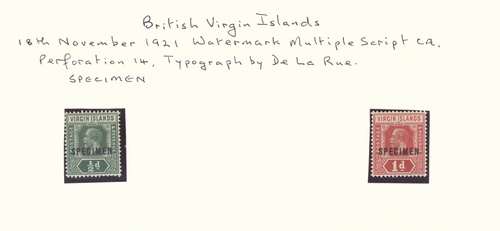 British Virgin Islands
18th November 1921 Watermark Multiple Script CA,
Perforation 14, Typograph by De La Rue.
SPECIMEN
VIRGIN ISLANDS
SPECIMEN
½d
VIRGIN ISLANDS
SPECIMEN
1d